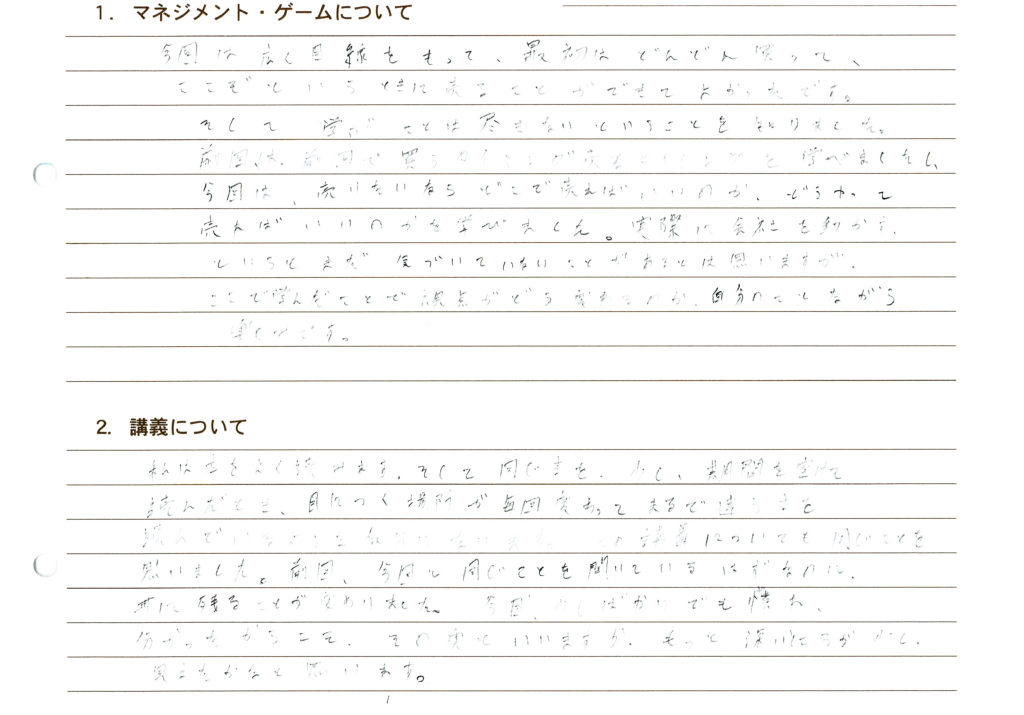 1. マネジメント・ゲームについて
今回は広く目線をもって、最初はどんどん買って、
ここぞというときに売ることができてよかったです。
そして学ぶことは尽きないということを知りました。
前回は、前回で買うということが売るということだと学べましたし、
今回は、売りたいならどこで売ればいいのか、どうやって
売ればいいのかを学びました。実際に会社を動かす
というとまだ気づいていないことがあるとは思いますが、
ここで学んだことで視点がどう変わるのか、自分のことながら
楽しみです。
2. 講義について
私は本をよく読みます。そして同じ本を、少し、期間を空けて
読んだとき、目につく場所が毎回変わってまるで違う本を
読んでいるような気分になります。この講義についても同じことを
思いました。前回、今回と同じことを聞いているはずなのに、
耳に残ることが変わりました。今回、少しばかりでも慣れ、
分かったからこそ、その奥といいますか、もっと深いところが少し、
見えたかなと思います。